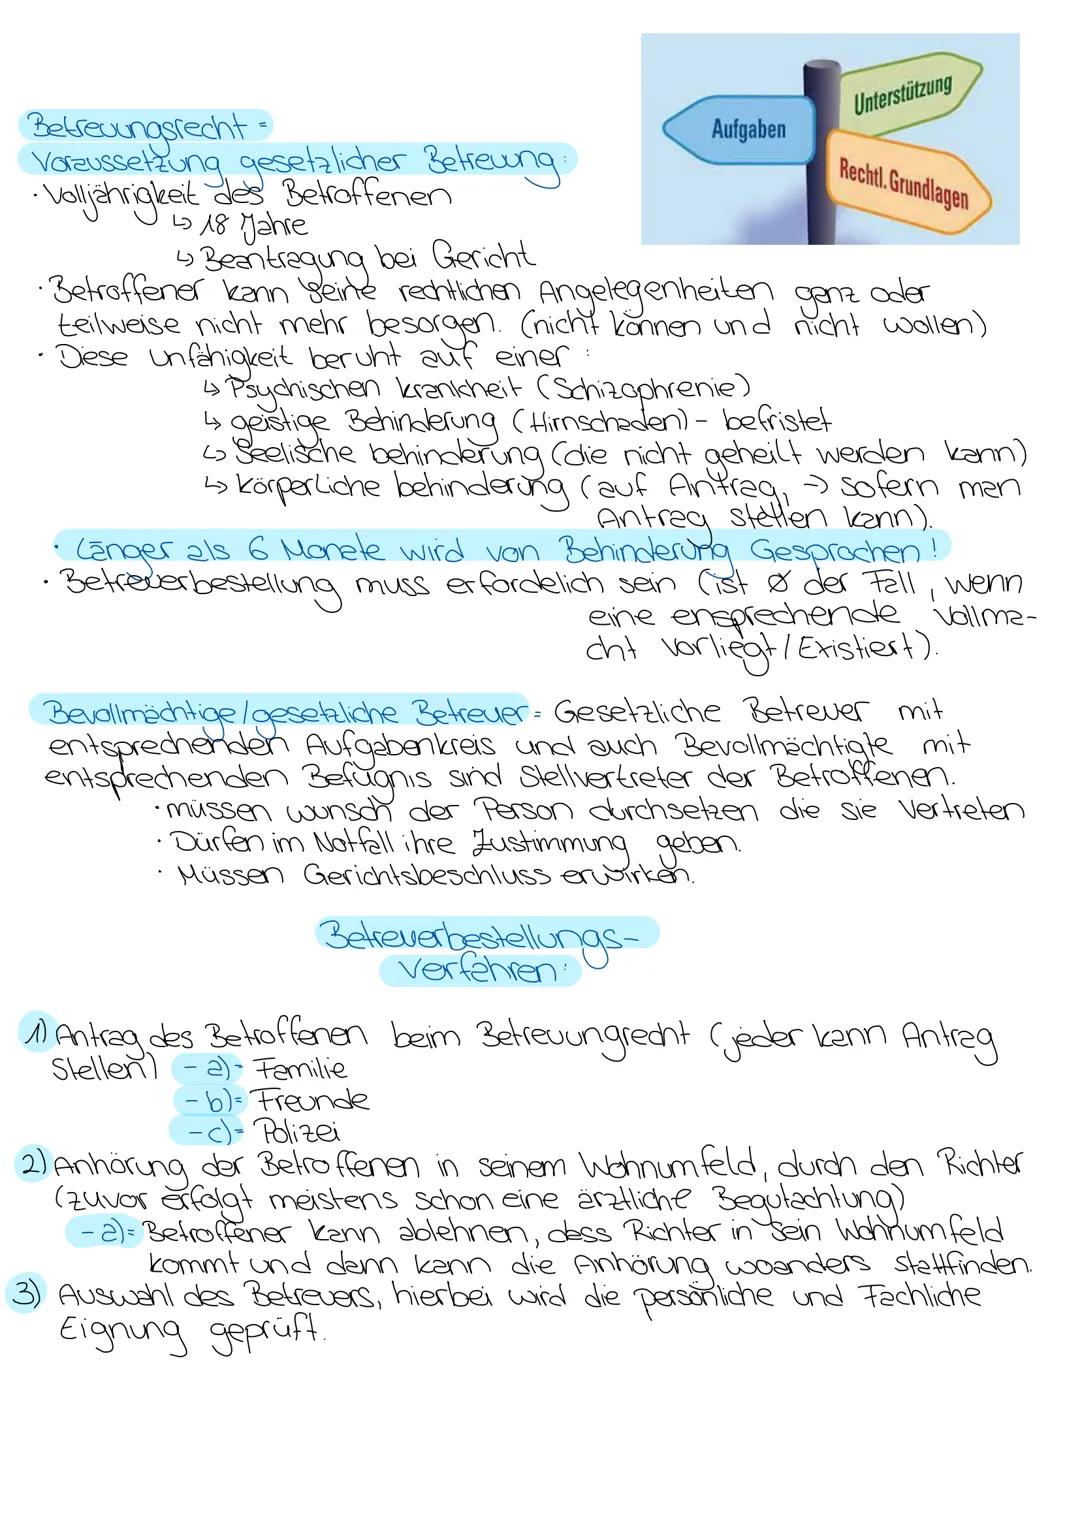 Aufgaben
Unterstützung
Rechtl. Grundlagen
Betreuungsrecht =
Voraussetzung gesetzlicher Betreuung:
· Volljährigkeit des Betroffenen
↳ 18 Jahre
↳ Beantragung bei Gericht
· Betroffener kann seine rechtlichen Angelegenheiten ganz oder
teilweise nicht mehr besorgen. (nicht können und nicht wollen)
· Diese Unfähigkeit beruht auf einer :
↳ Psychischen krankheit (Schizophrenie)
↳ geistige Behinderung (Hirnschaden) - befristet
↳ Seelische behinderung (die nicht geheilt werden kann)
↳ körperliche behinderung (auf Antrag, -> sofern man
Antrag stellen kann).
· Länger als 6 Monate wird von Behinderung Gesprochen!
· Betreuerbestellung muss erfordelich sein (ist Ø der Fall, wenn
eine ensprechende Vollma-
cht vorliegt/Existiert).
Bevollmächtige/gesetzliche Betreuer = Gesetzliche Betreuer mit
entsprechenden Aufgabenkreis und auch Bevollmächtigte mit
entsprechenden Befugnis sind Stellvertreter der Betroffenen.
· müssen wunsch der Person durchsetzen die sie Vertreten
· Dürfen im Notfall ihre Zustimmung geben.
· Müssen Gerichtsbeschluss erwirken.
Betreuerbestellungs-
verfahren:
1) Antrag des Betroffenen beim Betreuungrecht (jeder kann Antrag
Stellen) - a) = Familie
- b) = Freunde
- c) = Polizei
2) Anhörung der Betroffenen in seinem Wohnumfeld, durch den Richter
(zuvor erfolgt meistens schon eine ärztliche Begutachtung)
- a) = Betroffener kann ablehnen, dass Richter in sein Wohnumfeld
kommt und dann kann die Anhörung woanders stattfinden.
3) Auswahl des Betreuers, hierbei wird die persönliche und Fachliche
Eignung geprüft.